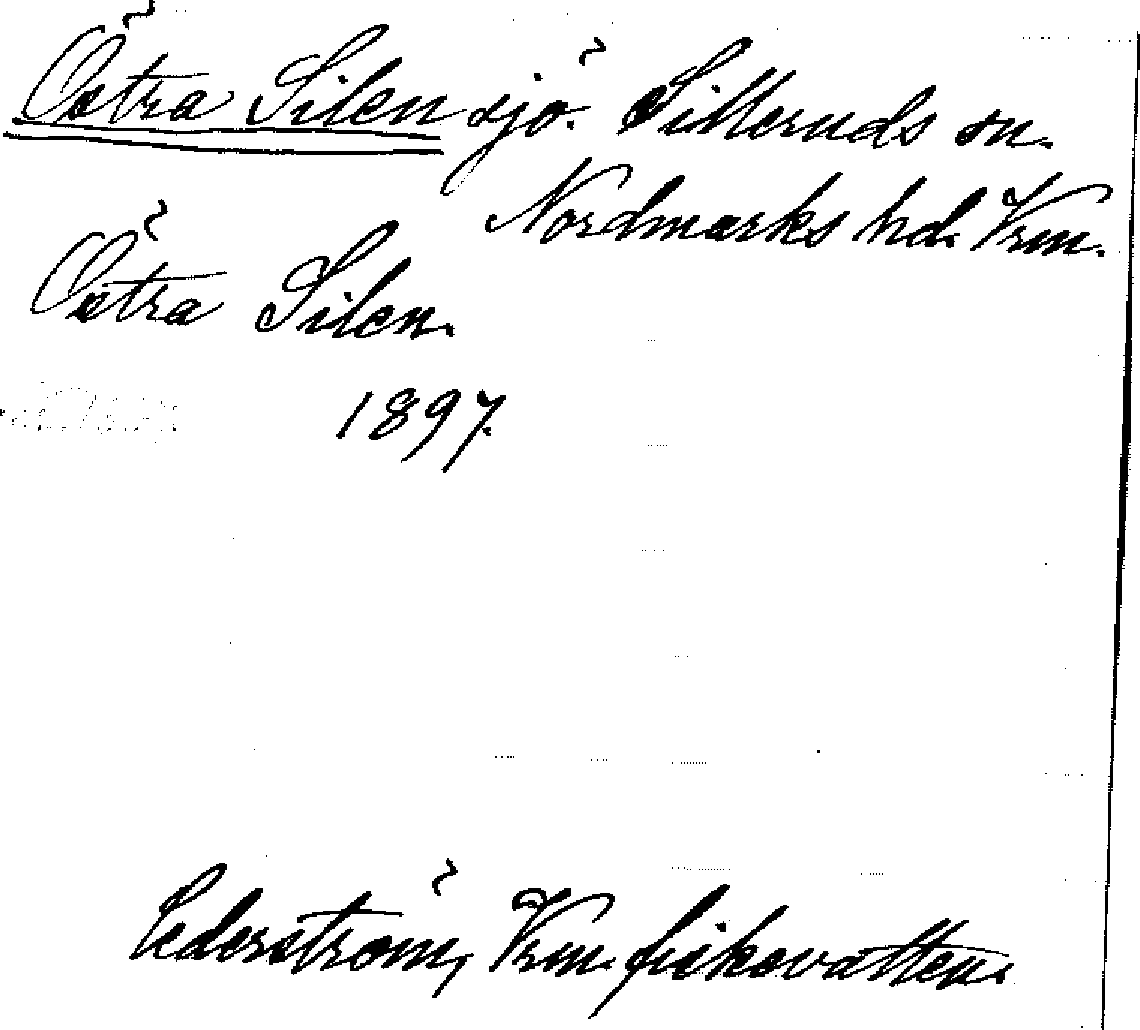 Östra Silen sjö. Silleruds sn.
Nordmarks hd. Vrm.
Östra Silen.
1897.
Cederström, Vrm. fiskevatten.